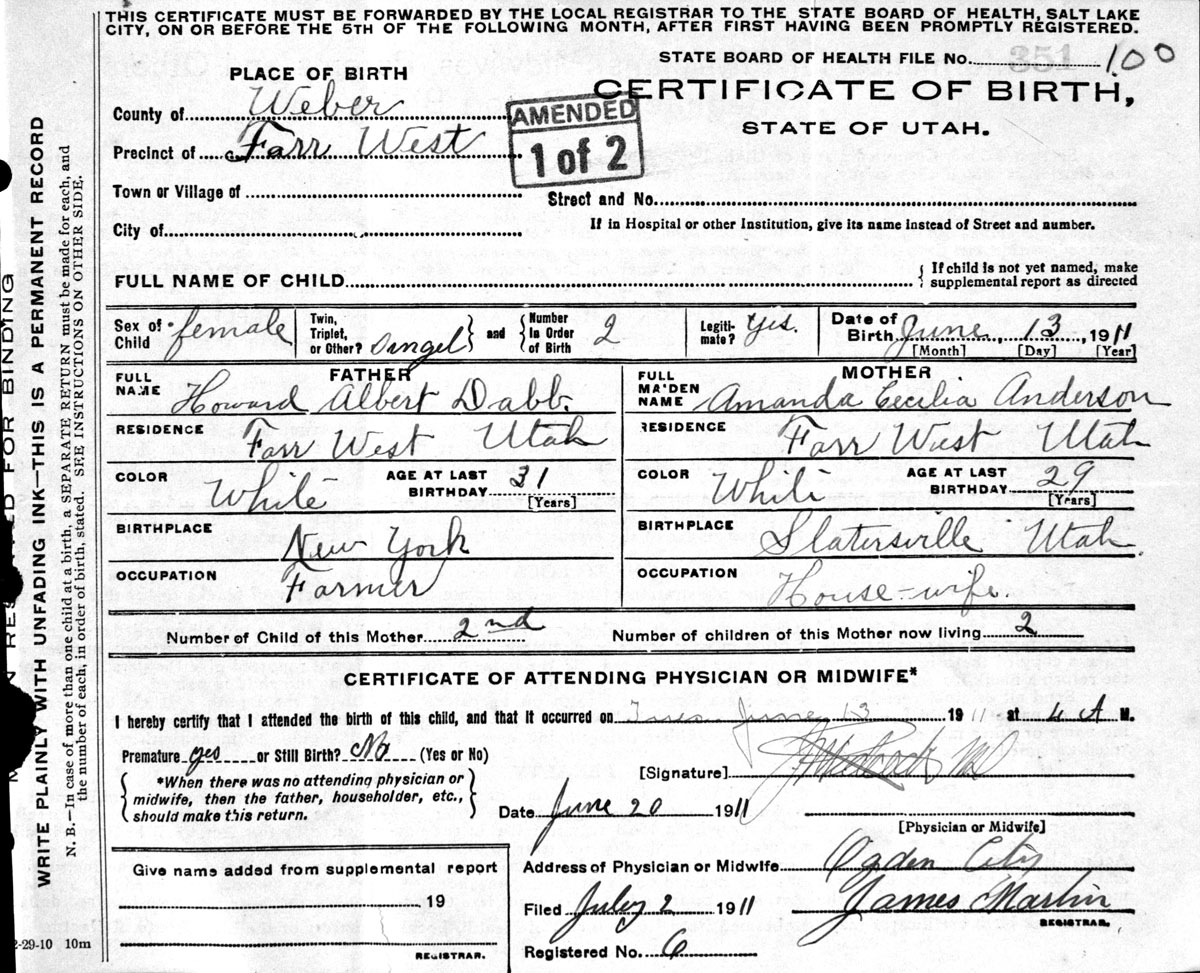 THIS CERTIFICATE MUST BE FORWARDED BY THE LOCAL REGISTRAR TO THE STATE BOARD OF HEALTH, SALT LAKE
CITY, ON OR BEFORE THE 5TH OF THE FOLLOWING MONTH, AFTER FIRST HAVING BEEN PROMPTLY REGISTERED.
STATE BOARD OF HEALTH FILE No. 351 100
PLACE OF BIRTH
CERTIFICATE OF BIRTH,
STATE OF UTAH.
County of Weber
Precinct of Farr West
AMENDED
1 of 2
Town or Village of
Street and No.
City of
If in Hospital or other Institution, give its name instead of Street and number.
FULL NAME OF CHILD
If child is not yet named, make
supplemental report as directed
Sex of Child female
Twin, Triplet, or Other? Singel and Number in Order of Birth 2
Legiti-mate? Yes.
Date of Birth June 13, 1911
[Month] [Day] [Year]
FATHER
FULL NAME Howard Albert Dabb.
RESIDENCE Farr West Utah
COLOR White AGE AT LAST BIRTHDAY 31 [Years]
BIRTHPLACE New York
OCCUPATION Farmer
MOTHER
FULL MAIDEN NAME Amanda Cecilia Anderson
RESIDENCE Farr West Utah
COLOR White AGE AT LAST BIRTHDAY 29 [Years]
BIRTHPLACE Slatersville Utah.
OCCUPATION House-wife.
Number of Child of this Mother 2nd Number of children of this Mother now living 2
CERTIFICATE OF ATTENDING PHYSICIAN OR MIDWIFE*
I hereby certify that I attended the birth of this child, and that it occurred on Tues June 13 1911 at 4 A M.
Premature yes or Still Birth? No (Yes or No)
[Signature]
*When there was no attending physician or
midwife, then the father, householder, etc.,
should make this return.
Date June 20 1911
[Physician or Midwife]
Address of Physician or Midwife Ogden City
Filed July 2 1911 James Martin
REGISTRAR.
Registered No. 6
Give name added from supplemental report
19
REGISTRAR.
2-29-10 10m
WRITE PLAINLY WITH UNFADING INK—THIS IS A PERMANENT RECORD
N. B.—In case of more than one child at a birth, a SEPARATE RETURN must be made for each, and
the number of each, in order of birth, stated. SEE INSTRUCTIONS ON OTHER SIDE.
FOR BINDING